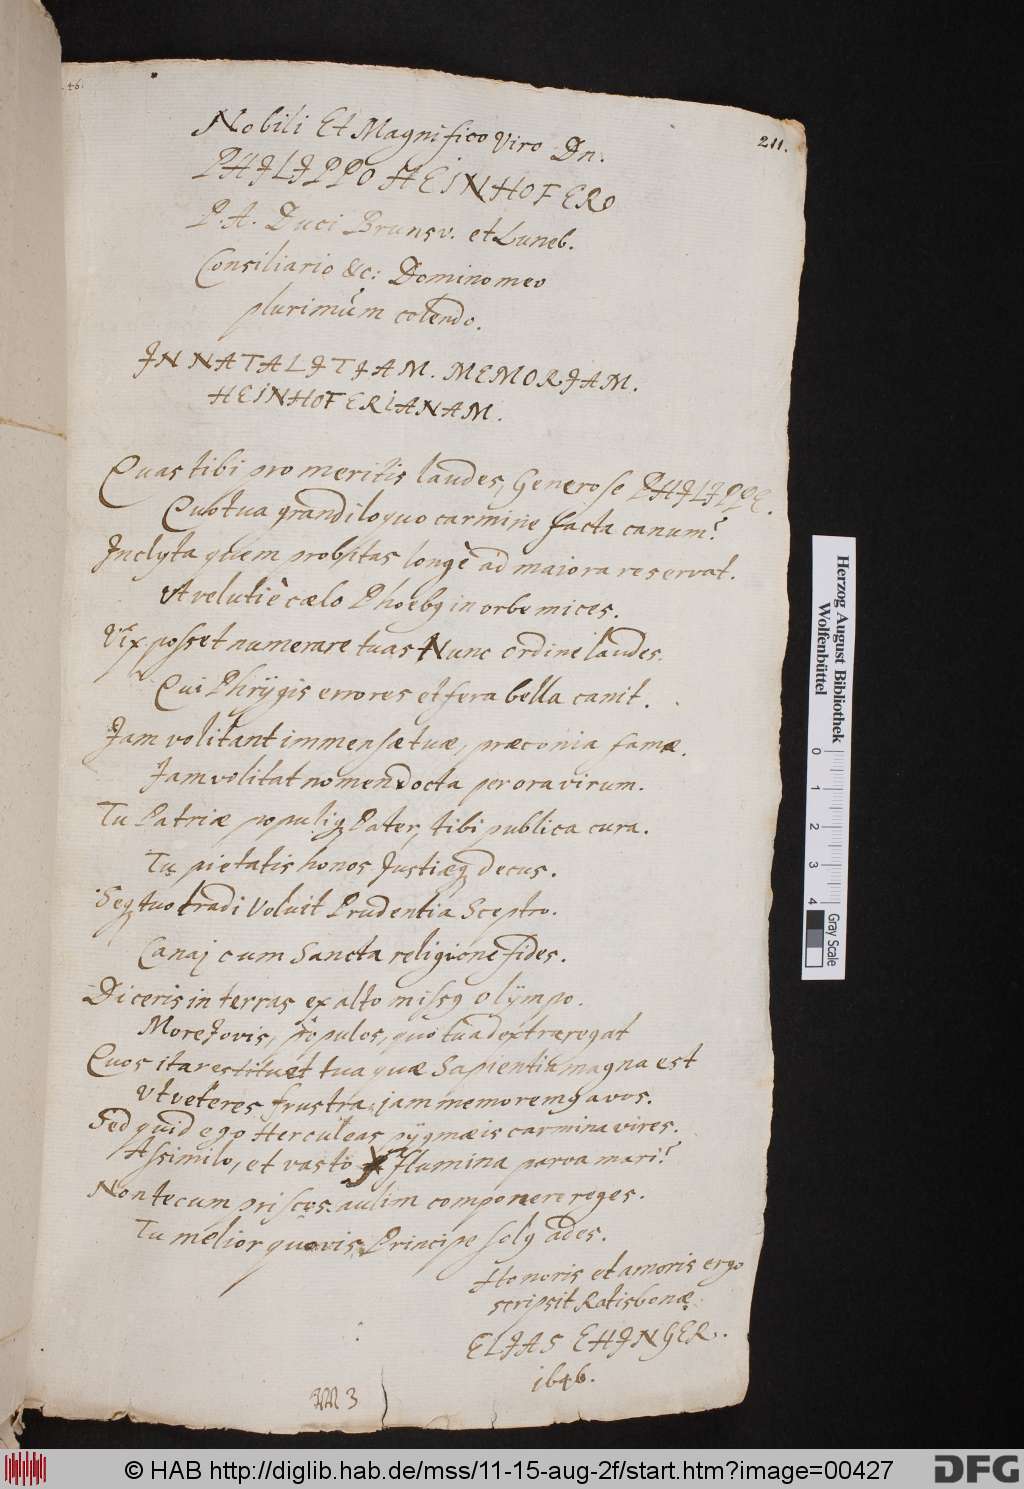 211.
Nobili Et Magnifico Viro Dn.
PHILIPPO HEINHOFERO
P. A. Duci Brunsv. et Luneb.
Consiliario &c: Domino meo
plurimùm colendo.
IN NATALITIAM. MEMORIAM.
HEINHOFERIANAM.
Quas tibi pro meritis laudes, Generose PHILIPPE.
Quo tua grandiloquo carmine facta canum?
Inclyta quem probitas longè ad maiora reservat.
Ut veluti è cælo Phoebꝰ in orbe mices.
Vix posset numerare tuas Nunc ordine laudes.
Qui Phrÿgis errores et fera bella canit.
Jam volitant immensæ tuæ, præconia famæ.
Jam volitat nomen docta per ora virum.
Tu Patriæ populiq; Pater, tibi publica cura.
Tu pietatis honos Justiæq; decus.
Seq; tuo tradi voluit Prudentia Sceptro.
Canaq; cum Sancta religione fides.
Diceris in terras ex alto missꝰ Olÿmpo.
More Jovis, populos, quo tua dextra regat
Quos ita restituet tua quæ Sapientia magna est
Ut veteres frustra, jam memoremꝰ avos.
Sed quid ego Herculeas pÿgmæis carmina vires.
Assimilo, et vasto flumina parva mari?
Non tecum priscos ausim componere reges.
Tu melior quovis Principe solꝰ ades.
Honoris et amoris ergo
scripsit Ratisbonæ
ELIAS EHINGER.
1646.
M 3
Herzog August Bibliothek
Wolfenbüttel
0 1 2 3 4
Gray Scale
© HAB http://diglib.hab.de/mss/11-15-aug-2f/start.htm?image=00427
DFG